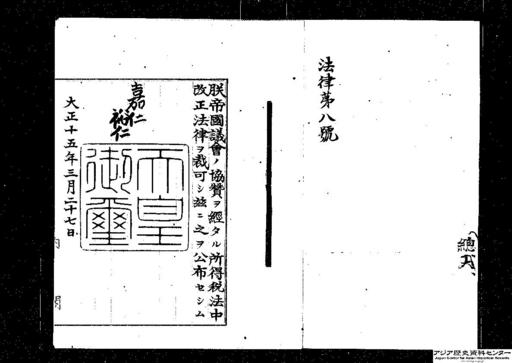 法律第八號
朕帝國議會ノ協贊ヲ經タル所得税法中
改正法律ヲ裁可シ茲ニ之ヲ公布セシム
嘉仁
裕仁
天皇
御璽
大正十五年三月二十七日
アジア歴史資料センター
Japan Center for Asian Historical Records